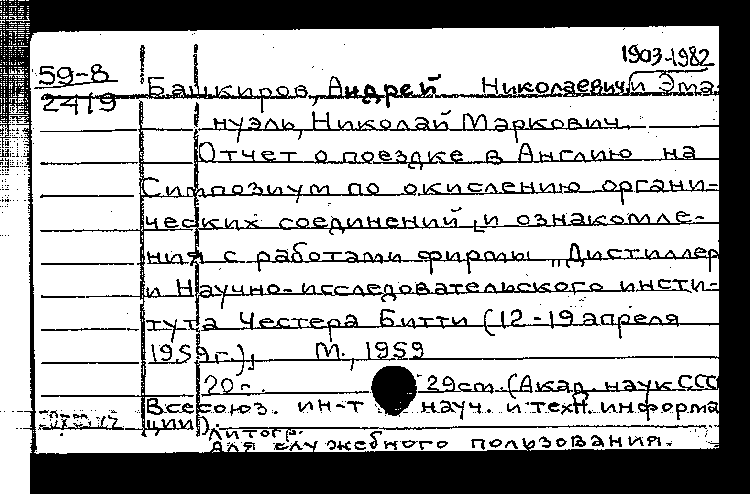 1903-1982
59-8
24/9
Башкиров, Андрей Николаевич и Эма-
нуэль, Николай Маркович.
Отчет о поездке в Англию на
Симпозиум по окислению органи-
ческих соединений и ознакомле-
ния с работами фирмы „Дистиллер
и Научно-исследовательского инсти-
тута Честера Битти (12-19 апреля
1959г.). М., 1959
20с. 29см. (Акад. наук ССС
Всесоюз. ин-т науч. и техн. информа
ции).
Литогр.
Для служебного пользования.